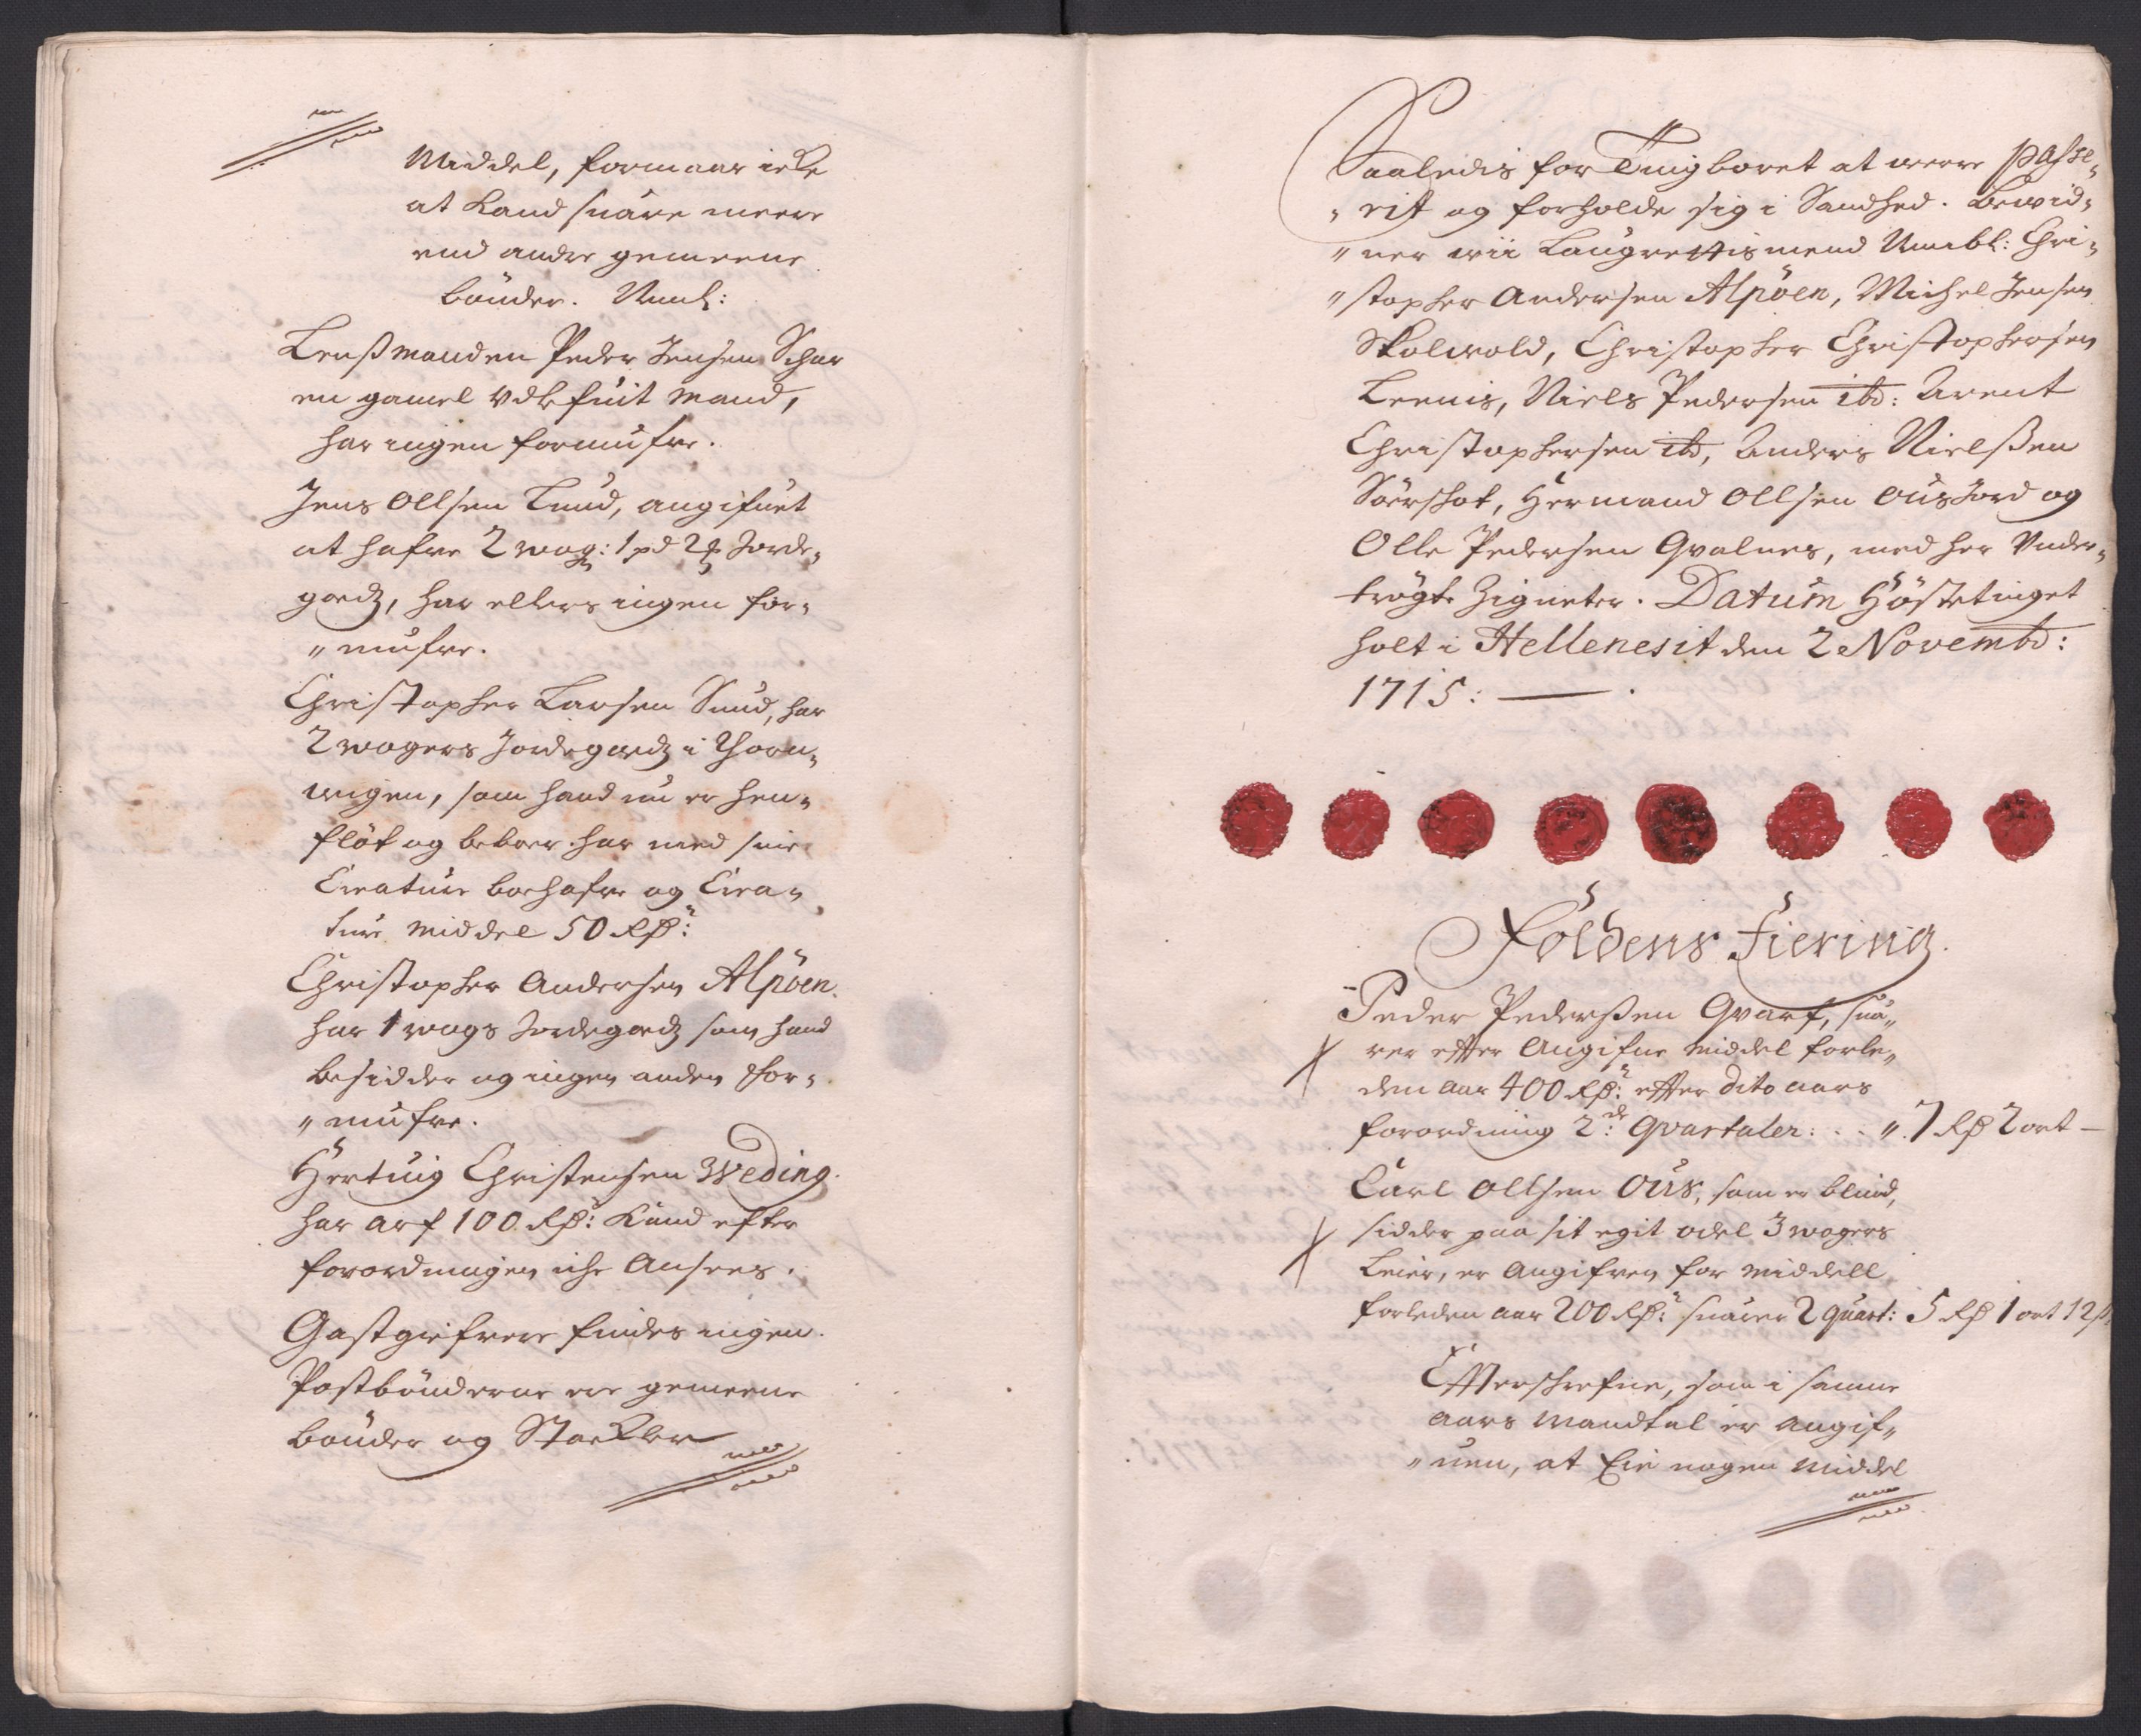 Middel, formaar icke
at Kand suare meere
end andre gemeene
bönder. Neml:
Lensmanden Peder Jensen Schar
en gamel Udlefuit mand,
har ingen formufue.
Jens Ollsen Lund, angifuet
at hafve 2 wog: 1 pd Jorde„
godz, har ellers ingen for„
„mufve.
Christopher Larsen Sund, har
2 wogers Jordegodz i
wigen, som hand nu er hen„
fløt og beboer har med sine
Creature boehafve og Crea„
ture middel 50 Rd:
Christopher Andersen Alpöen.
har 1 wogs Jordegodz som hand
besidder og ingen anden For„
„mufve.
Hertuig Christensen Weding.
har arf 100 Rd: Kand efter
forordningen iche Ansees.
Gastgiefvere findes ingen.
Postbönderne ere gemeene
bönder og Stackler
Saaledis for Tingboret at were passe„
„rit og forholde sig i Sandhed. Bewid„
„ner wii Laugrettismend Nembl: Chri„
„stopher Andersen Alpöen, Michel Jensen
Skolwold, Christopher Christophersen
Leenis, Niels Pedersen ibd: Arent
Christophersen ibd, Anders Nielsen
Hermand Ollsen Ousiord og
Olle Pedersen Qvalnes, med her Under„
trögte Zigneter. Datum Höstetinget
holt i Hellenesit den 2 Novembr:
1715:
Földens Fiering.
Peder Pedersen Qvarf, sua„
rer efter Angifne middel forle„
den aar 400 Rd: efter dito aars
forordning 2de: Qvartaler: . . „ 7 Rd 2 ort —
Carl Ollsen Ous, som er blind,
sidder paa sit egit odel 3 wogers
Leier, er Angifven for middell
forleden aar 200 Rd: suarer 2 Quart: 5 Rd 1 ort 12 s
Efterschrefne, som i samme
aars mandtal er angif„
„uen, at Eie nogen middel